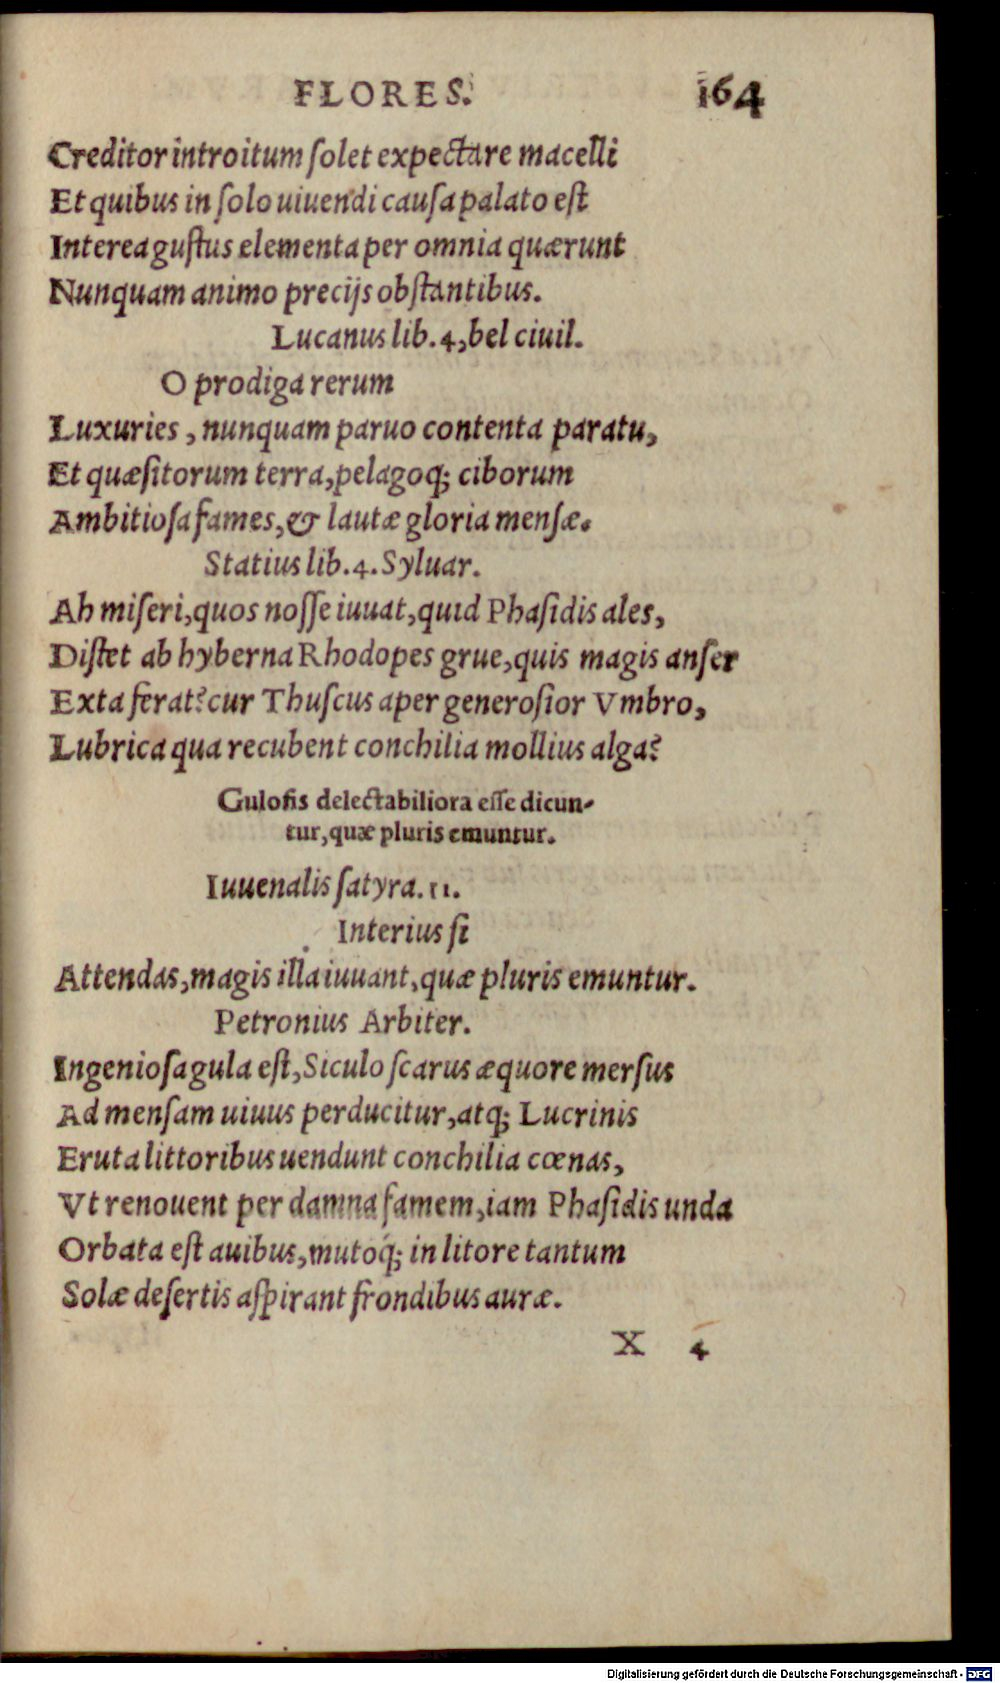 FLORES. 164
Creditor introitum ſolet expectare macelli
Et quibus in ſolo uiuendi cauſa palato eſt
Interea guſtus elementa per omnia quærunt
Nunquam animo precijs obſtantibus.
Lucanus lib. 4, bel ciuil.
O prodiga rerum
Luxuries, nunquam paruo contenta paratu,
Et quæſitorum terra, pelagoq; ciborum
Ambitioſa fames, & lautæ gloria menſæ.
Statius lib. 4. Syluar.
Ah miſeri, quos noſſe iuuat, quid Phaſidis ales,
Diſtet ab hyberna Rhodopes grue, quis magis anſer
Exta ferat? cur Thuſcus aper generoſior Vmbro,
Lubrica qua recubent conchilia mollius alga?
Guloſis delectabiliora eſſe dicun-
tur, quæ pluris emuntur.
Iuuenalis ſatyra. 11.
Interius ſi
Attendas, magis illa iuuant, quæ pluris emuntur.
Petronius Arbiter.
Ingenioſa gula eſt, Siculo ſcarus æquore merſus
Ad menſam uiuus perducitur, atq; Lucrinis
Eruta littoribus uendunt conchilia cœnas,
Vt renouent per damna famem, iam Phaſidis unda
Orbata eſt auibus, mutoq́; in litore tantum
Solæ deſertis aſpirant frondibus auræ.
X 4
Digitalisierung gefördert durch die Deutsche Forschungsgemeinschaft - DFG